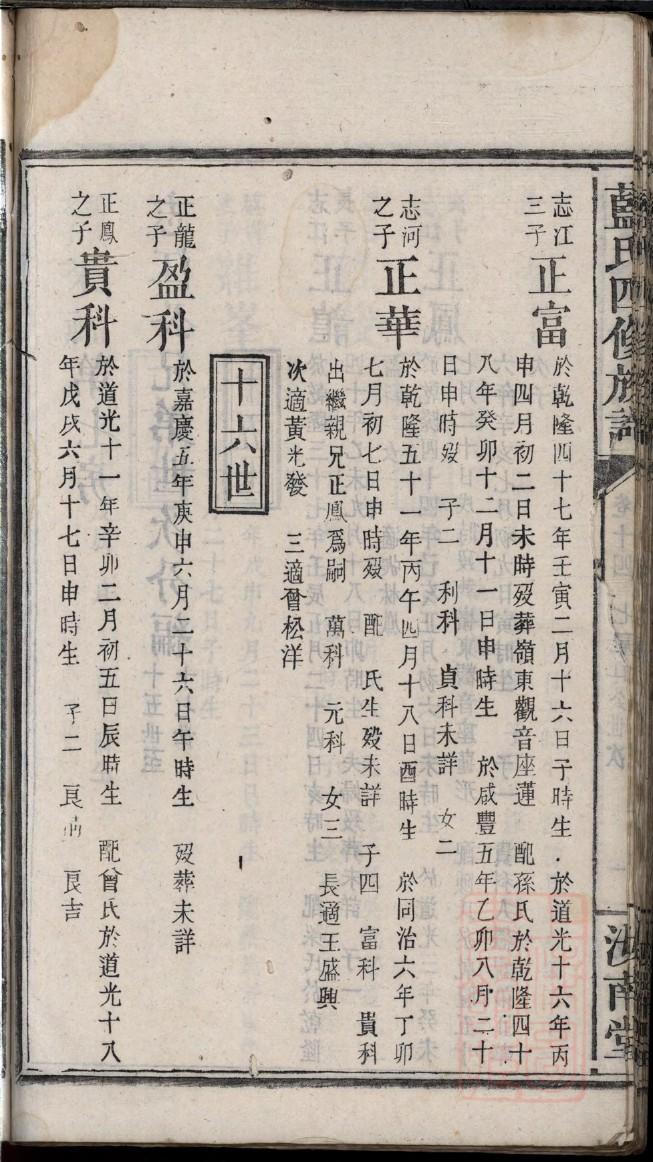 藍氏四修族譜
汝南堂
志江三子 正富 於乾隆四十七年壬寅二月十六日子時生．於道光十六年丙
申四月初二日未時歿葬嶺東觀音座蓮 配孫氏於乾隆四十
八年癸卯十二月十一日申時生 於咸豐五年乙卯八月二十
日申時歿 子二 利科 貞科未詳 女二
志河之子 正華 於乾隆五十一年丙午四月十八日酉時生 於同治六年丁卯
七月初七日申時歿 配 氏生歿未詳 子四 富科 貴科
出繼親兄正鳳為嗣 萬科 元科 女三 長適王盛興
次適黃光發 三適曾松洋
十六世
正龍之子 盈科 於嘉慶五年庚申六月二十六日午時生 歿葬未詳
正鳳之子 貴科 於道光十一年辛卯二月初五日辰時生 配曾氏於道光十八
年戊戌六月十七日申時生 子二 良 良吉